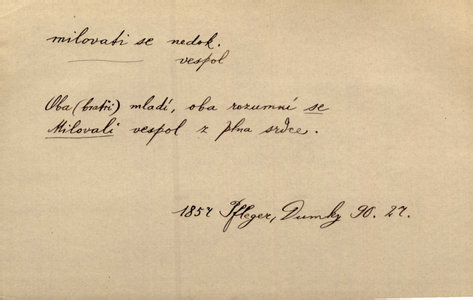 milovati se nedok.
vespol
Oba (bratři) mladí, oba rozumní se
Milovali vespol z plna srdce.
1857 Pfleger, Dumky 90. 27.